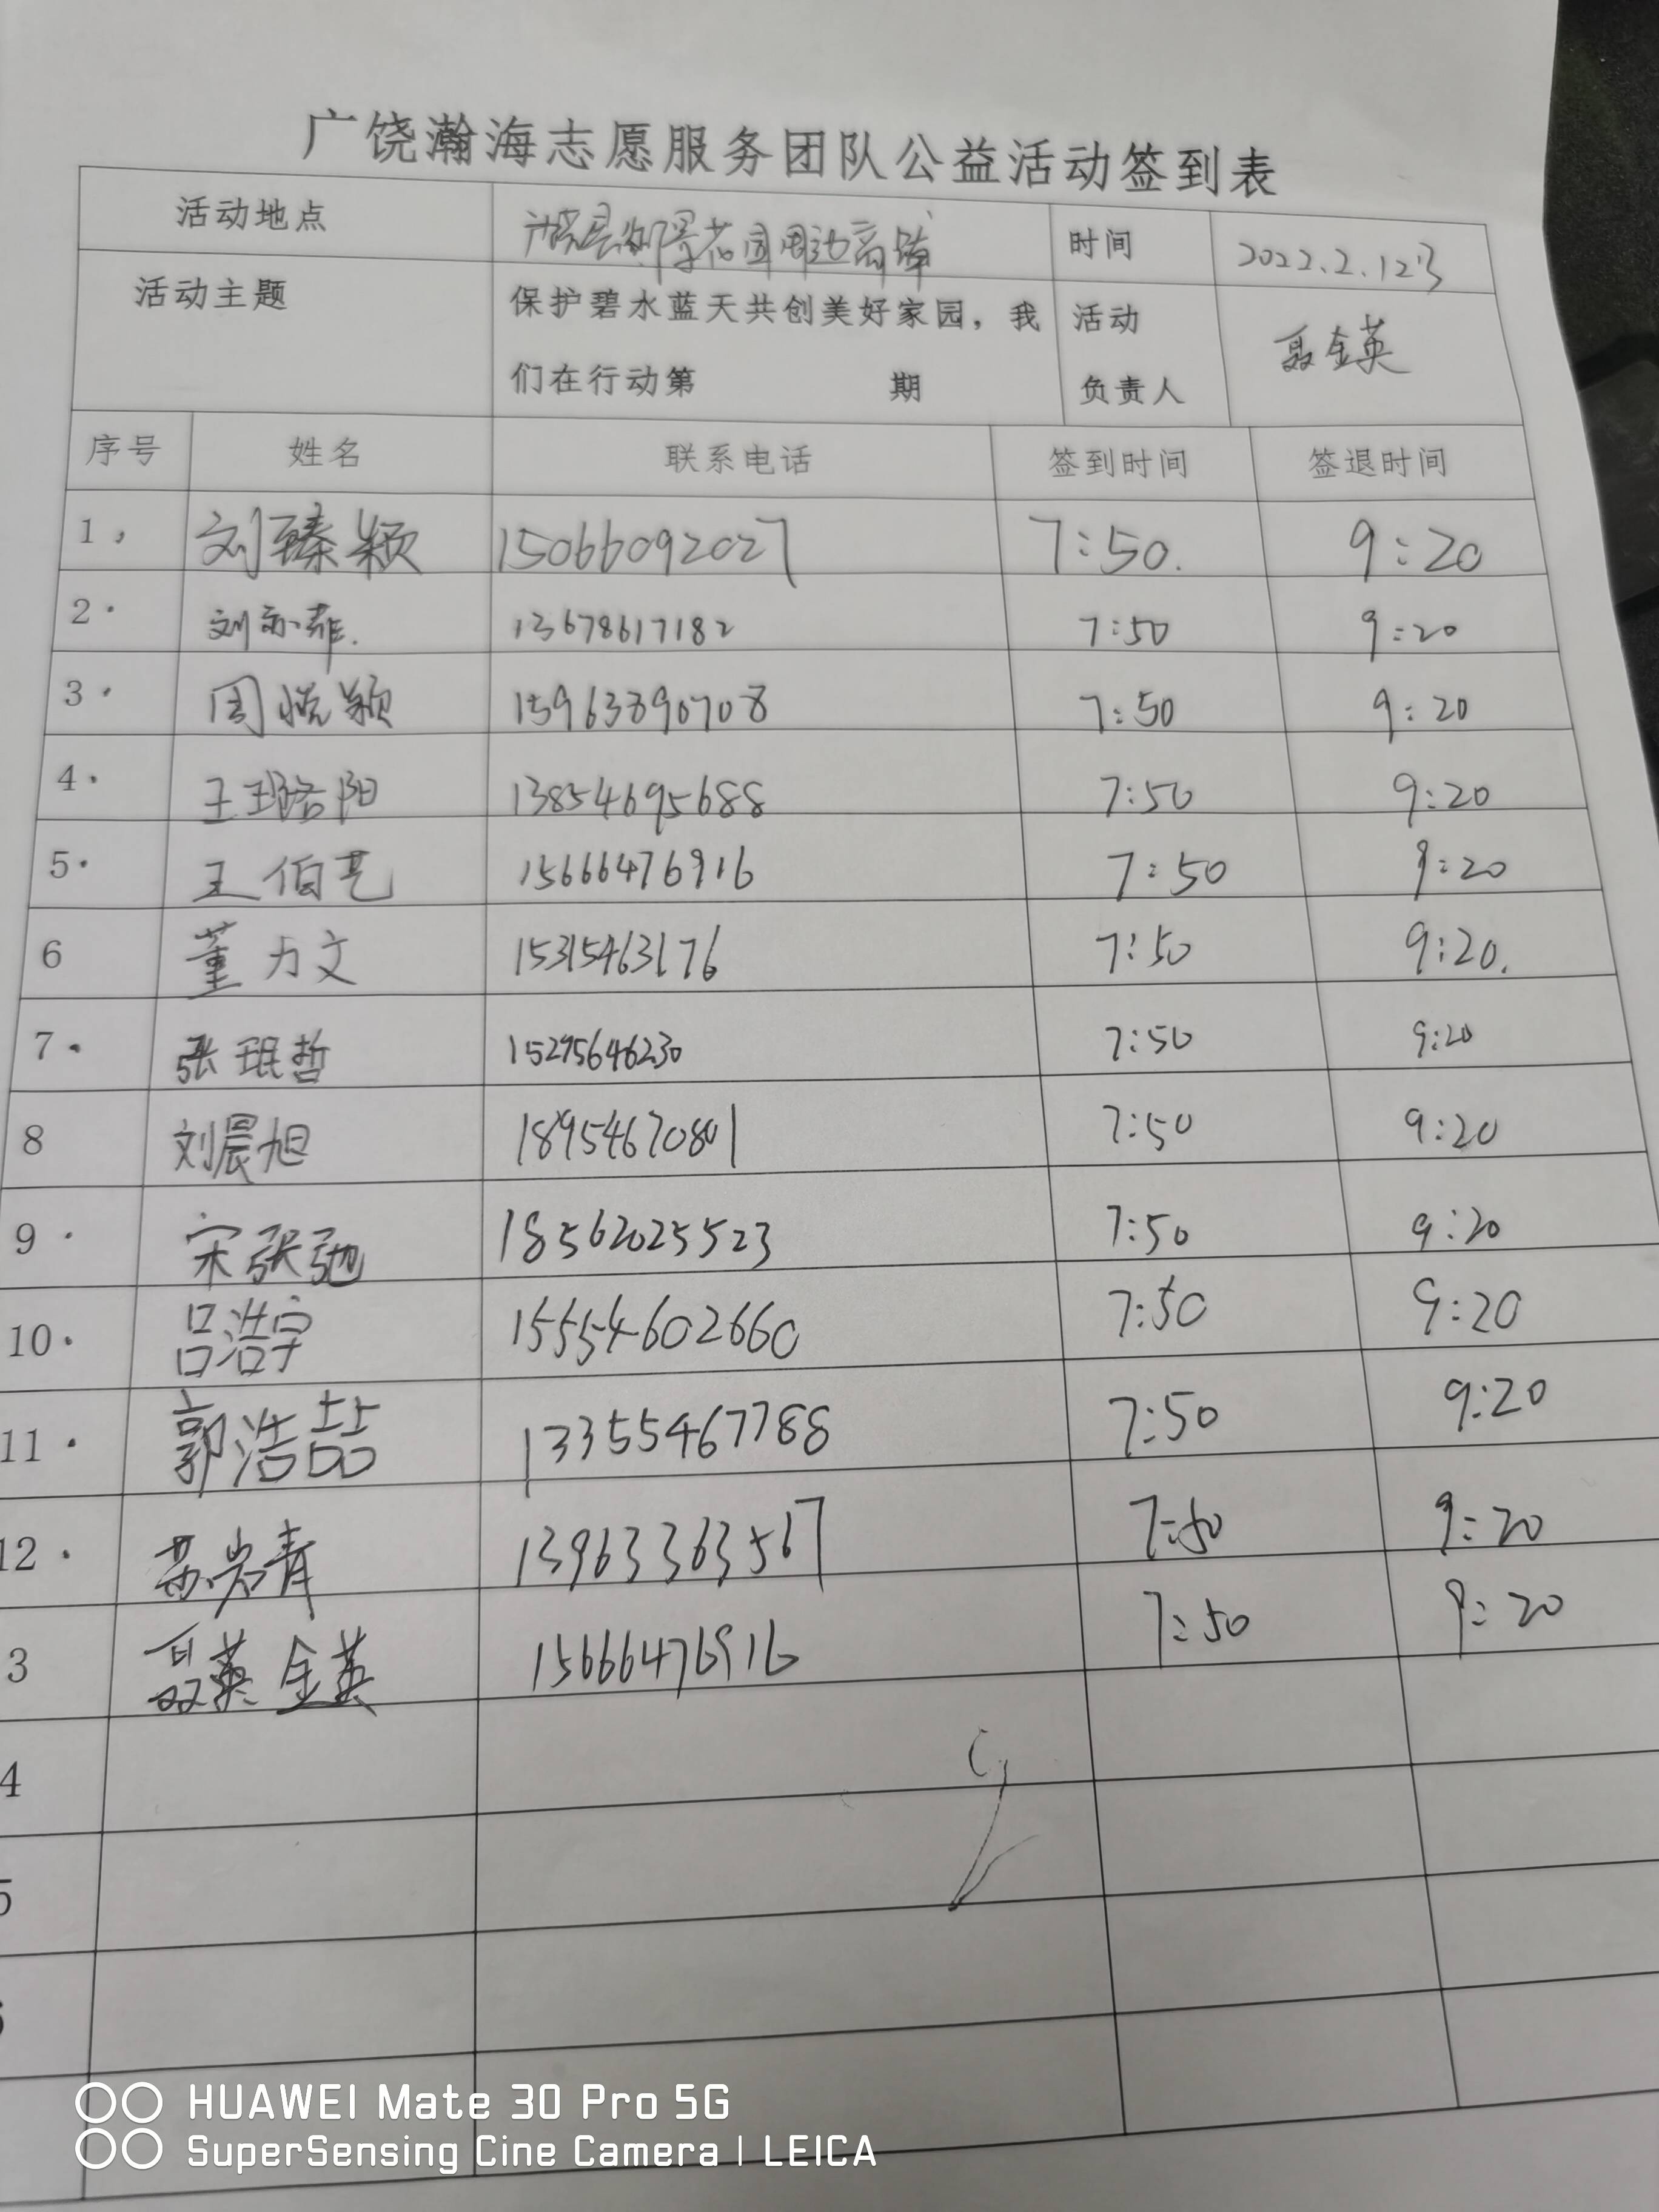 广饶瀚海志愿服务团队公益活动签到表
活动地点 广饶县 花园周边商铺 时间 2022.2.12日
活动主题 保护碧水蓝天共创美好家园，我 活动
们在行动第 期 负责人 聂金英
序号 姓名 联系电话 签到时间 签退时间
1， 刘臻颖 15066092027 7:50. 9:20
2. 刘亦菲. 13678617182 7:50 9:20
3. 周悦颖 15963890708 7:50 9:20
4. 王珺皓阳 13854695688 7:50 9:20
5. 王伯艺 15666476916 7:50 9:20
6 董力文 15315463176 7:50 9:20.
7. 张珉哲 15275646230 7:50 9:20
8 刘晨旭 18954670801 7:50 9:20
9. 宋张弛 18562025523 7:50 9:20
10. 吕浩宇 15554602660 7:50 9:20
11. 郭浩喆 13355467788 7:50 9:20
12. 苏岩青 13963363567 7:50 9:20
3 聂 金英 15666476916 7:50 9:20
4
5
HUAWEI Mate 30 Pro 5G
SuperSensing Cine Camera | LEICA